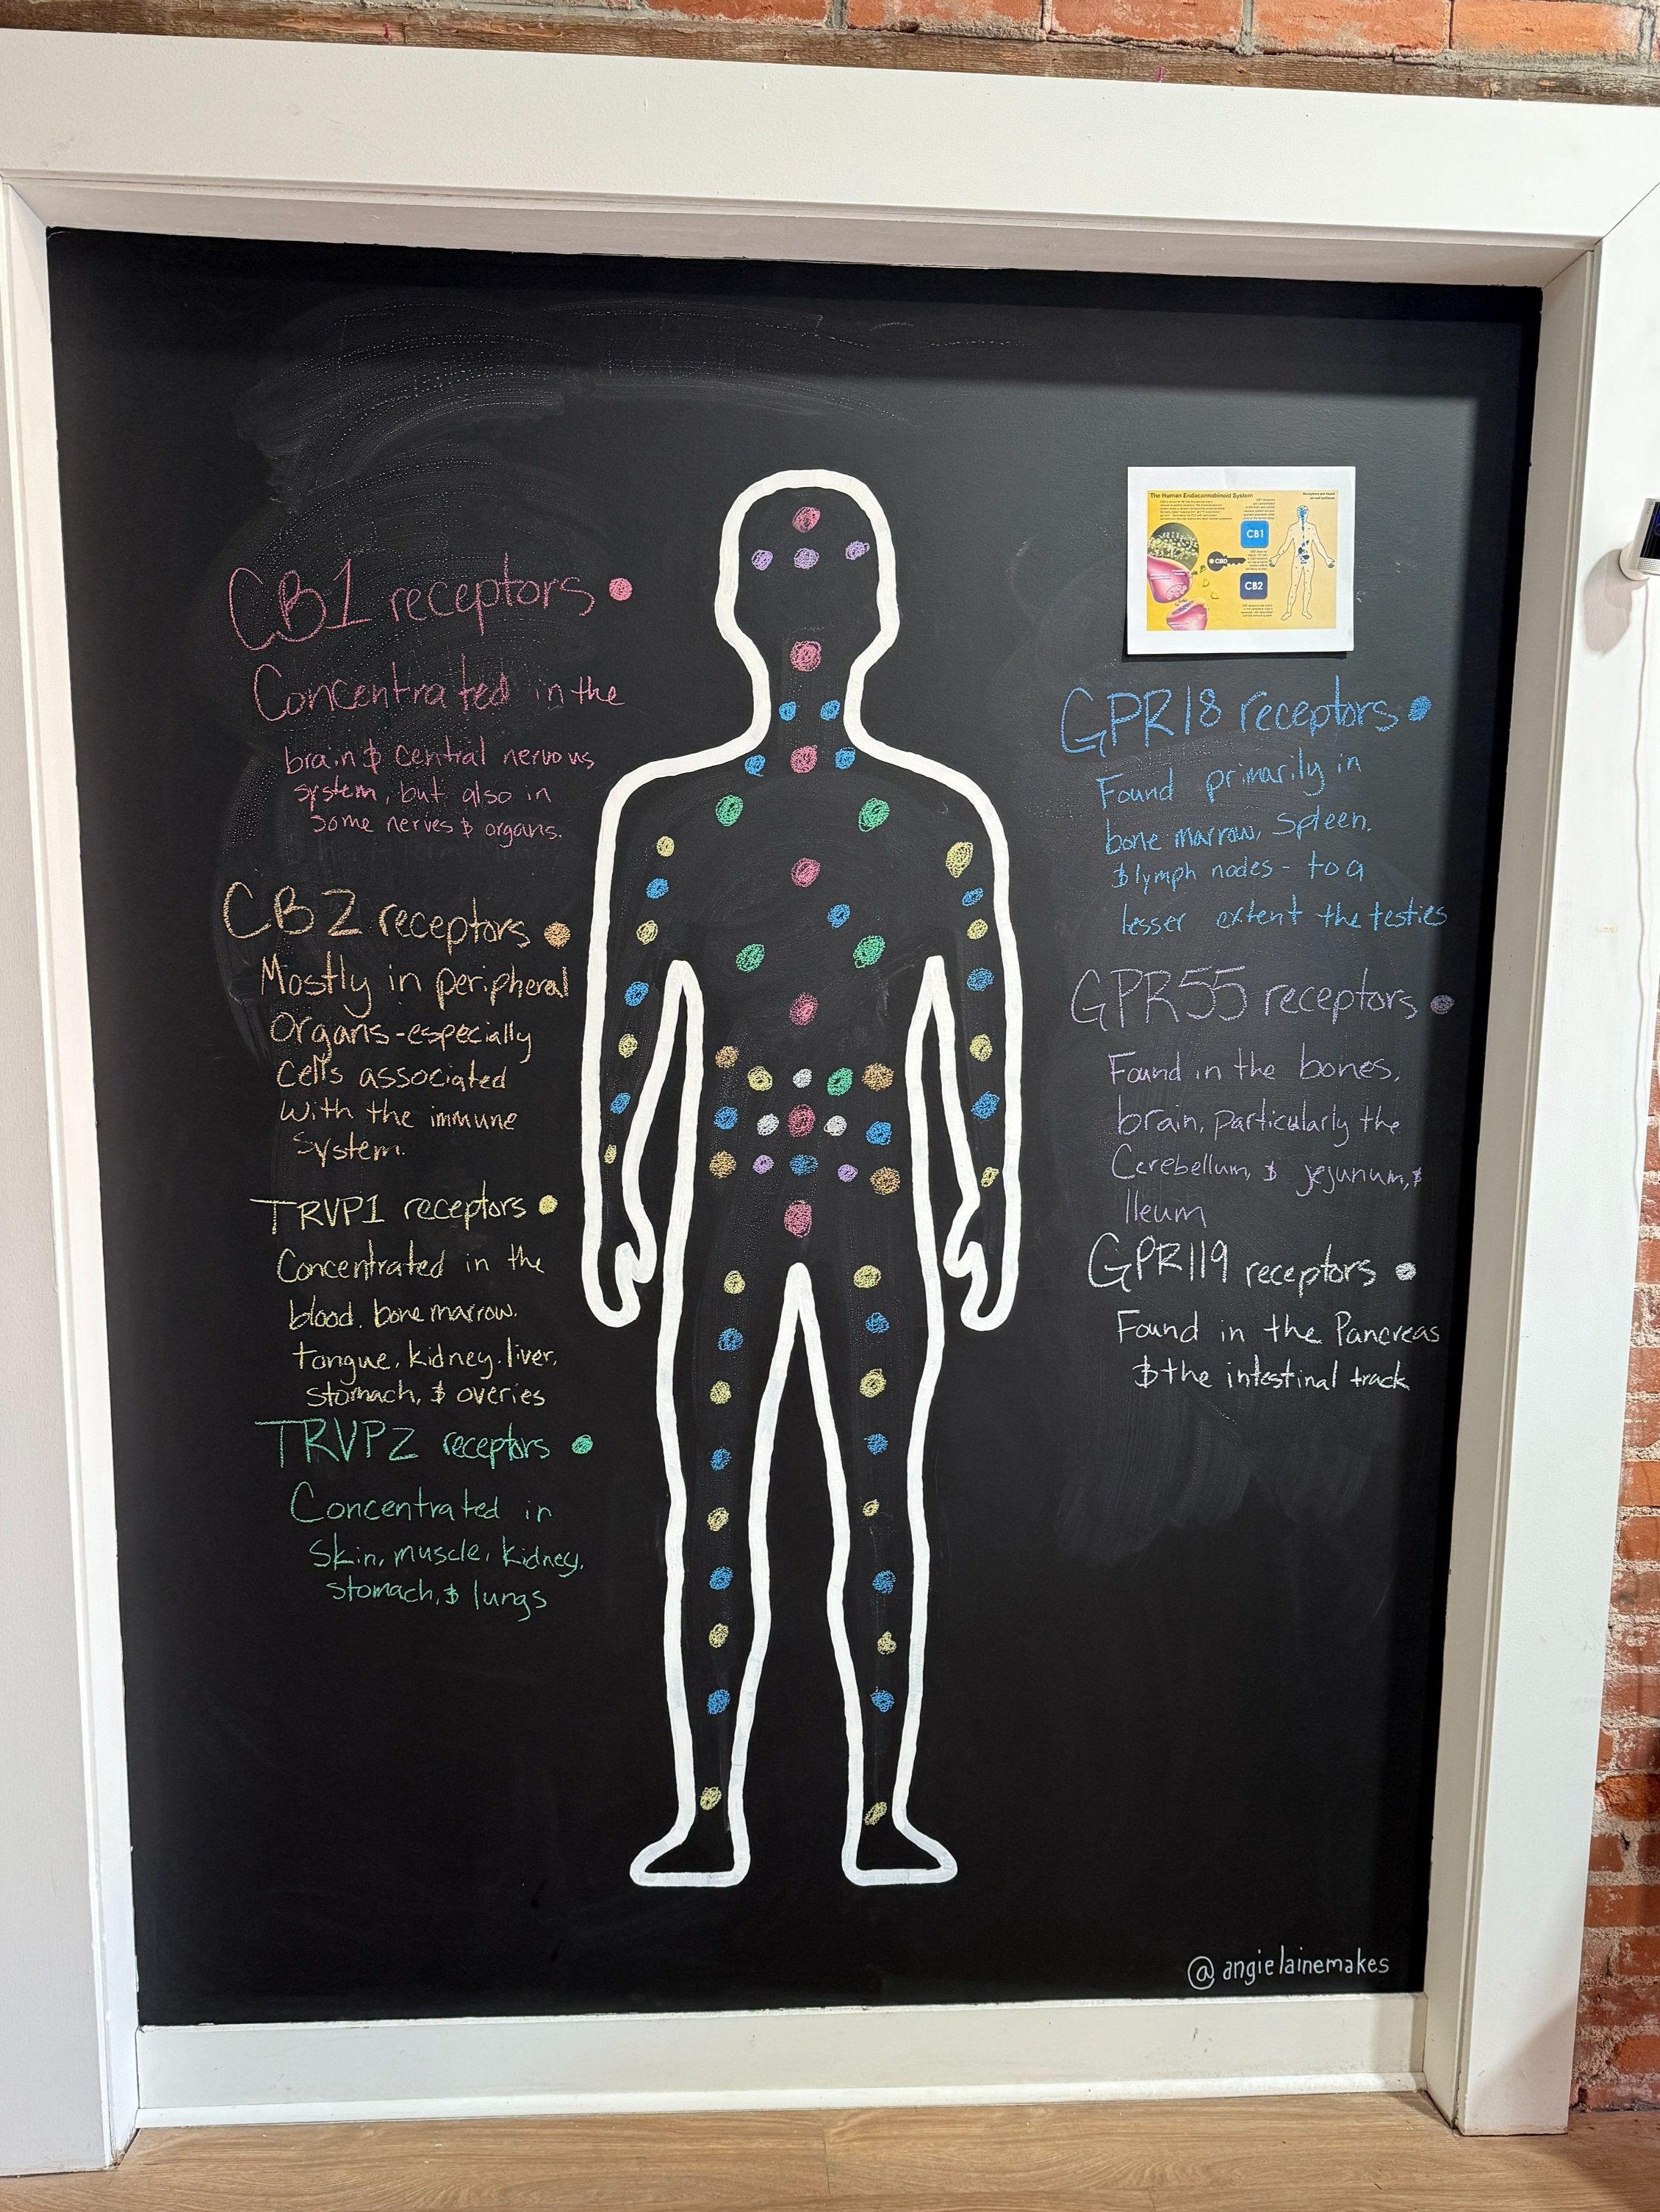 CB1 receptors
Concentrated in the
brain & central nervous
system, but also in
Some nerves & organs.
CB2 receptors
Mostly in peripheral
Organs-especially
Cells associated
with the immune
System.
TRVP1 receptors
Concentrated in the
blood, bone marrow,
tongue, kidney, liver,
stomach, & overies
TRVP2 receptors
Concentrated in
Skin, muscle, kidney,
stomach, & lungs
The Human Endocannabinoid System
Receptors are found
on cell surfaces
CB1
CBD
CB2
GPR18 receptors
Found primarily in
bone marrow, spleen,
& lymph nodes - to a
lesser extent the testies
GPR55 receptors
Found in the bones,
brain, particularly the
Cerebellum, & jejunum, &
Ileum
GPR119 receptors
Found in the Pancreas
& the intestinal track
@angielainemakes